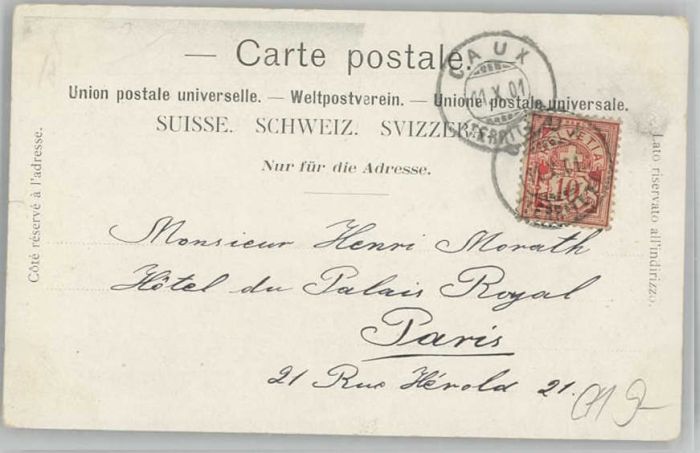 — Carte postale.
Union postale universelle. — Weltpostverein. — Unione postale universale.
SUISSE. SCHWEIZ. SVIZZERA.
Nur für die Adresse.
Côté réservé à l'adresse.
Lato riservato all'indirizzo.
CAUX
X.01
HELVETIA
10
Monsieur Henri Morath
Hôtel du Palais Royal
Paris
21 Rue Hérold 21.